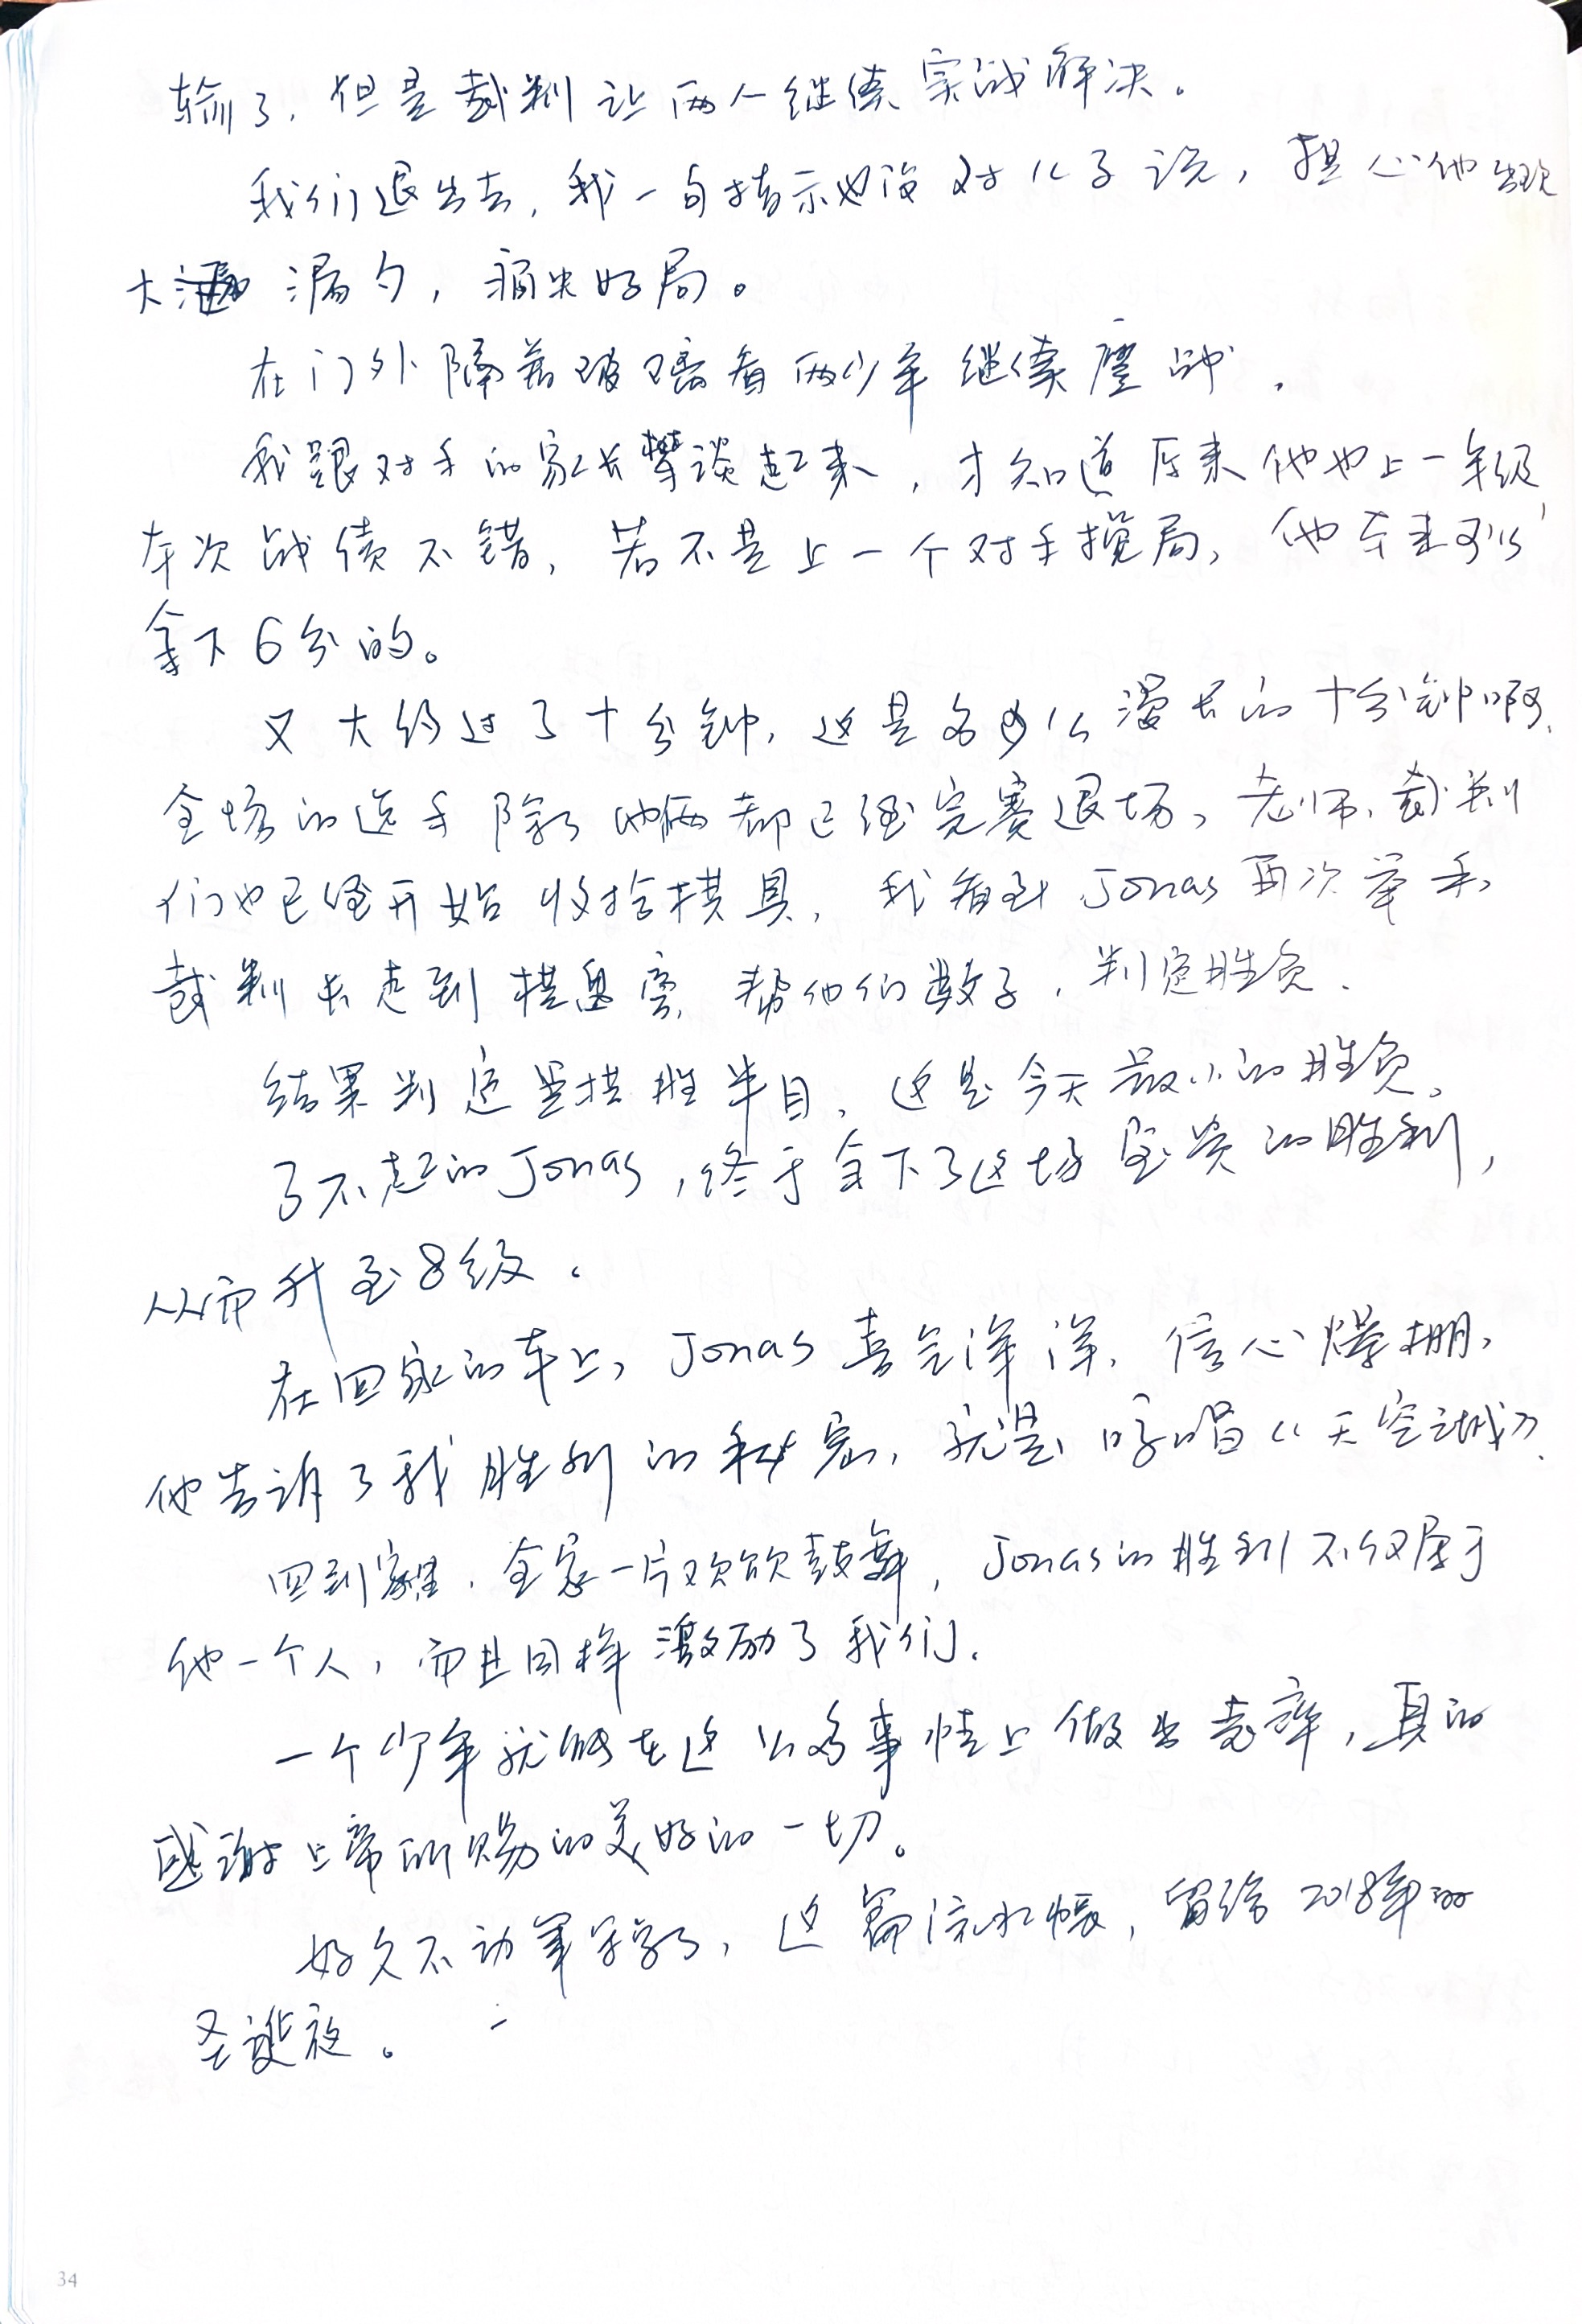 输了，但是裁判让两人继续实战解决。
我们退出去，我一句指示也没对儿子说，担心他出现
大漏勺，痛失好局。
在门外隔着玻璃看两少年继续鏖战，
我跟对手的家长攀谈起来，才知道原来他也上一年级，
本次战绩不错，若不是上一个对手搅局，他本来可以
拿下6分的。
又大约过了十分钟，这是多么漫长的十分钟啊，
全场的选手除了他俩都已经完赛退场，老师、裁判
们也已经开始收拾棋具，我看到Jonas再次举手，
裁判长走到棋盘旁，帮他们数子，判定胜负．
结果判定黑棋胜半目，这是今天最小的胜负。
了不起的Jonas，终于拿下了这场宝贵的胜利，
从而升至8级。
在回家的车上，Jonas喜气洋洋，信心爆棚，
他告诉了我胜利的秘密，就是哼唱《天空之城》．
回到家里，全家一片欢欣鼓舞，Jonas的胜利不仅属于
他一个人，而且同样激励了我们．
一个少年就能在这么多事情上做出表率，真的
感谢上帝所赐的美好的一切。
好久不动笔写字了，这篇流水帐，留给2018年的
圣诞夜。
34